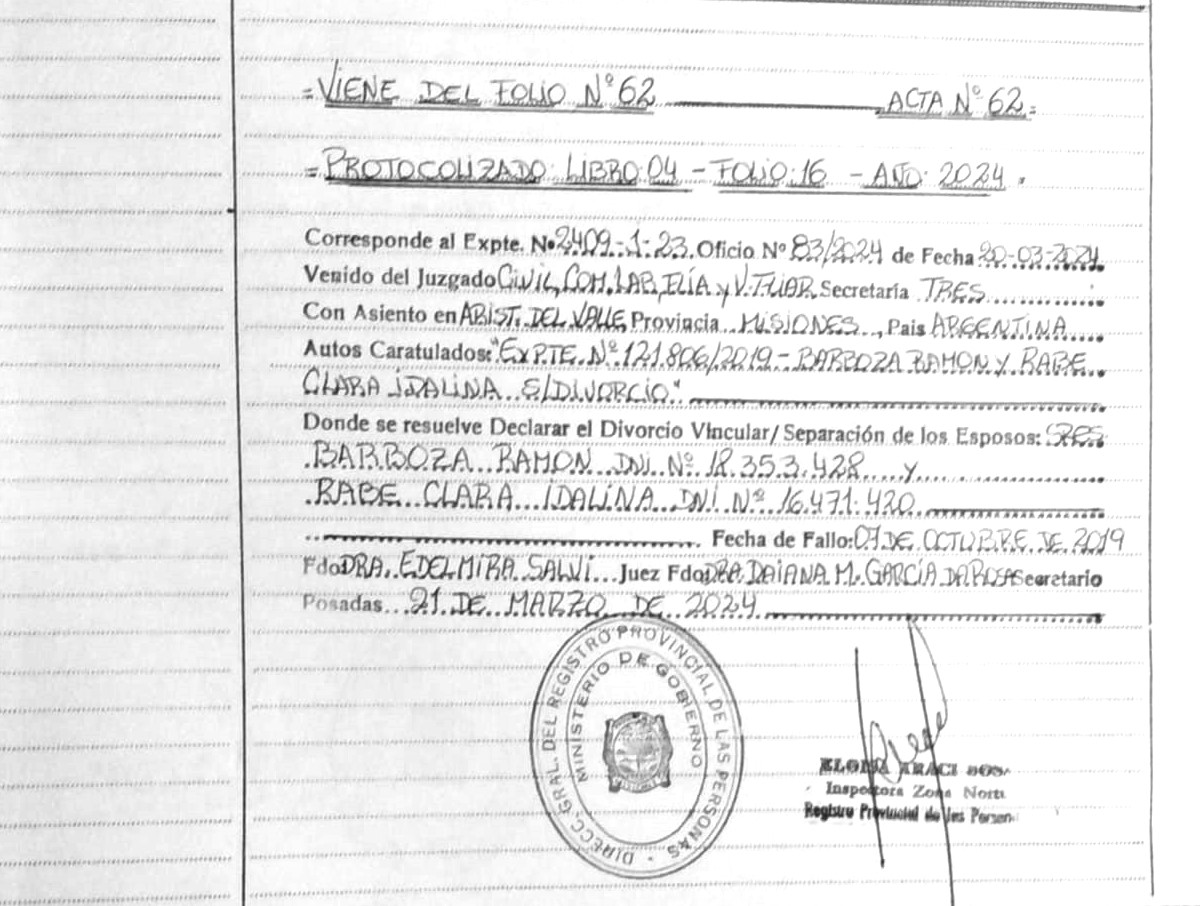 =VIENE DEL FOLIO Nº 62 ACTA Nº 62=
=PROTOCOLIZADO: LIBRO: 04 - FOLIO: 16 - AÑO: 2024.
Corresponde al Expte. Nº 2409-1-23. Oficio Nº 83/2024 de Fecha 20-03-2024
Venido del Juzgado CIVIL, COM. LAB, FLIA y V. FLIAR Secretaría TRES
Con Asiento en ARIST. DEL VALLE Provincia MISIONES, Pais ARGENTINA
Autos Caratulados: "EXPTE. Nº 121.806/2019 - BARBOZA RAMON Y RABE
CLARA IDALINA S/DIVORCIO"
Donde se resuelve Declarar el Divorcio Vincular/ Separación de los Esposos: SRES
BARBOZA RAMON DNI Nº 18.353.428 y
RABE CLARA IDALINA DNI Nº 16.471.420
Fecha de Fallo: 07 DE OCTUBRE DE 2019
Fdo DRA. EDELMIRA SALVI Juez Fdo DRA. DAIANA M. GARCÍA DA ROSA Secretario
Posadas 21 DE MARZO DE 2024
DIRECC. GRAL. DEL REGISTRO PROVINCIAL DE LAS PERSONAS
MINISTERIO DE GOBIERNO
ARACI
Inspectora Zona Norte
Registro Provincial de las Person